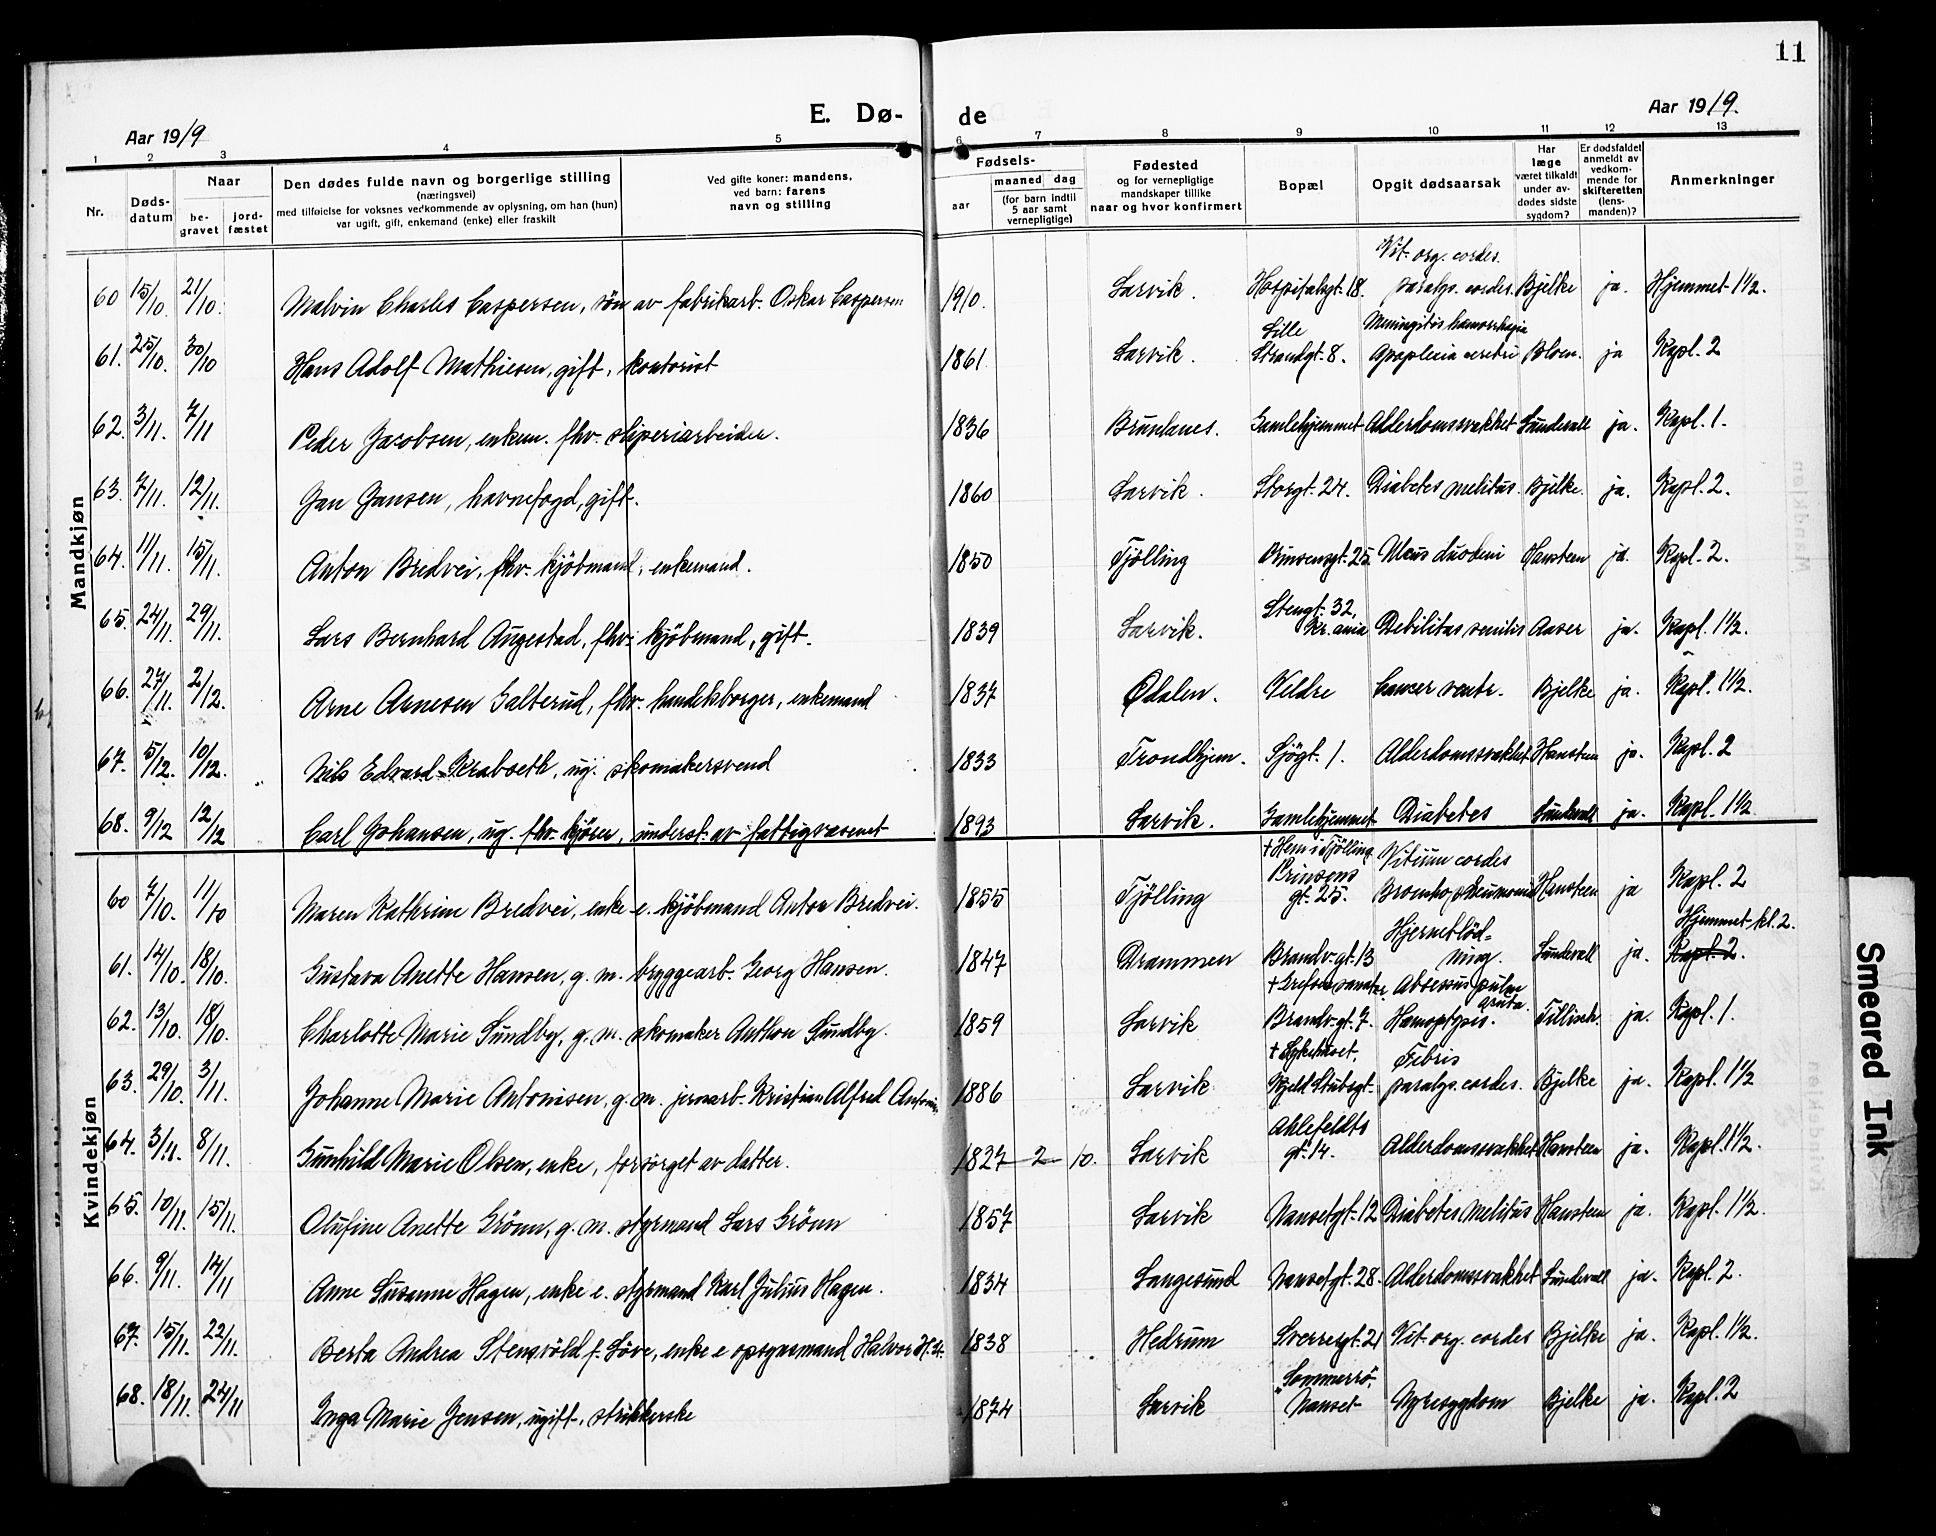 11
Aar 1919
E. Dø-
de
Aar 1919.
1 2 3 4 5 6 7 8 9 10 11 12 13
Nr.
Døds-
datum
Naar
be-
gravet
jord-
fæstet
Den dødes fulde navn og borgerlige stilling
(næringsvei)
med tilføielse for voksnes vedkommende av oplysning, om han (hun)
var ugift, gift, enkemand (enke) eller fraskilt
Ved gifte koner: mandens,
ved barn: farens
navn og stilling
Fødsels-
aar
maaned dag
(for barn indtil
5 aar samt
vernepligtige)
Fødested
og for vernepligtige
mandskaper tillike
naar og hvor konfirmert
Bopæl
Opgit dødsaarsak
Har
læge
været tilkaldt
under av-
dødes sidste
sygdom?
Er dødsfaldet
anmeldt av
vedkom-
mende for
skifteretten
(lens-
manden)?
Anmerkninger
Mandkjøn
60 15/10. 21/10. Malvin Charles Caspersen, søn av fabrikarb. Oskar Caspersen 1910. Larvik. Hospitalsgt. 18. Vit. org. cordis. paralys. cordis. Bjelke ja. Hjemmet 1½.
61. 25/10. 30/10 Hans Adolf Mathiesen, gift, kontorist 1861 Larvik. Lille Strandgt. 8. Meningitis hæmorrhagia Apoplexia cerebri ja Kapl. 2
62. 3/11. 7/11 Peder Jacobsen, enkem. fhv. sliperiarbeider. 1836 Brunlanes. Gamlehjemmet Alderdomssvakhet Sundevall ja. Kapl. 1.
63. 7/11. 12/11. Jan Jansen, havnefogd, gift. 1860 Larvik. Storgt. 24. Diabetes melitus. Bjelke. ja. Kapl. 2.
64. 11/11. 15/11. Anton Bredvei, fhv. kjöbmand, enkemand. 1850 Tjölling Prinsensgt. 25 Ulcus duodeni Hansteen ja. Kapl. 2.
65. 24/11. 29/11. Lars Bernhard Augestad, fhv. kjöbmand, gift. 1839 Larvik. Stengt. 32, Kr.ania Debilitas senilis Aaser ja. Kapl. 1½.
66. 27/11. 2/12. Arne Arnesen Galterud, fhv. handelsborger, enkemand 1837 Ødalen. Veldre Cancer ventr. Bjelke ja. Kapl. 1½.
67. 5/12. 10/12. Nils Edvard Kraboeth, ug. skomakersvend 1833 Trondhjem. Sjögt. 1. Alderdomssvakhet Hansteen ja. Kapl. 2
68. 9/12 12/12 Carl Johansen, ug. fhv. kjörer, underst. av fattigvæsenet 1893 Larvik. Gamlehjemmet Diabetes Sundevall ja. Kapl. 1½.
Kvindekjøn
60 7/10. 11/10 Maren Kathrine Bredvei, enke e. kjöbmand Anton Bredvei. 1855 Tjölling + Hem i Tjölling Prinsens gt. 25. Vitium cordis Broncho pneumonia Hansteen ja Kapl. 2
61. 14/10. 18/10. Gustava Anette Hansen, g. m. bryggearb. Georg Hansen. 1847 Drammen Brandv. gt. 13 Hjerneblöd- ning. Sundevall ja. Hjemmet kl. 2. Kapl. 2.
62. 13/10. 18/10. Charlotte Marie Sundby, g. m. skomaker Anthon Sundby. 1859 Larvik + Grefsen sanator. Brandv. gt. 7. Abcessus pulm acuta. Hæmoptysis. Tillisch. ja. Kapl. 1.
63. 29/10. 3/11. Johanne Marie Antonisen, g. m. jernarb. Kristian Alfred Antonis. 1886 Larvik + Sykehuset. Kjeld Stubsgt. Febris paralys. cordis. Bjelke ja. Kapl. 1½
64. 3/11. 8/11. Gunhild Marie Olsen, enke, forsörget av datter. 1827 2 10. Larvik Ahlefeldts gt. 14. Alderdomssvakhet Hansteen ja. Kapl. 1½.
65. 10/11. 15/11. Olufine Anette Grönn, g. m. styrmand Lars Grönn 1857 Larvik Nansetgt. 12 Diabetes Melitus Hansteen ja. Kapl. 1½.
66. 9/11. 14/11 Anne Susanne Hagen, enke e. styrmand Karl Julius Hagen. 1834 Langesund Nansetgt. 28. Alderdomssvakhet Sundevall ja. Kapl. 2.
67. 15/11. 22/11. Berta Andrea Stensvöld f. Löve, enke e opsynsmand Halvor H. St. 1838 Hedrum Sverresgt. 21 Vit. org. cordis Bjelke ja. Kapl. 1½.
68. 18/11. 24/11 Inga Marie Jensen, ugift, strikkerske 1874 Larvik "Sommerrö, Nanset Nyresygdom Bjelke ja. Kapl. 2
Smeared Ink